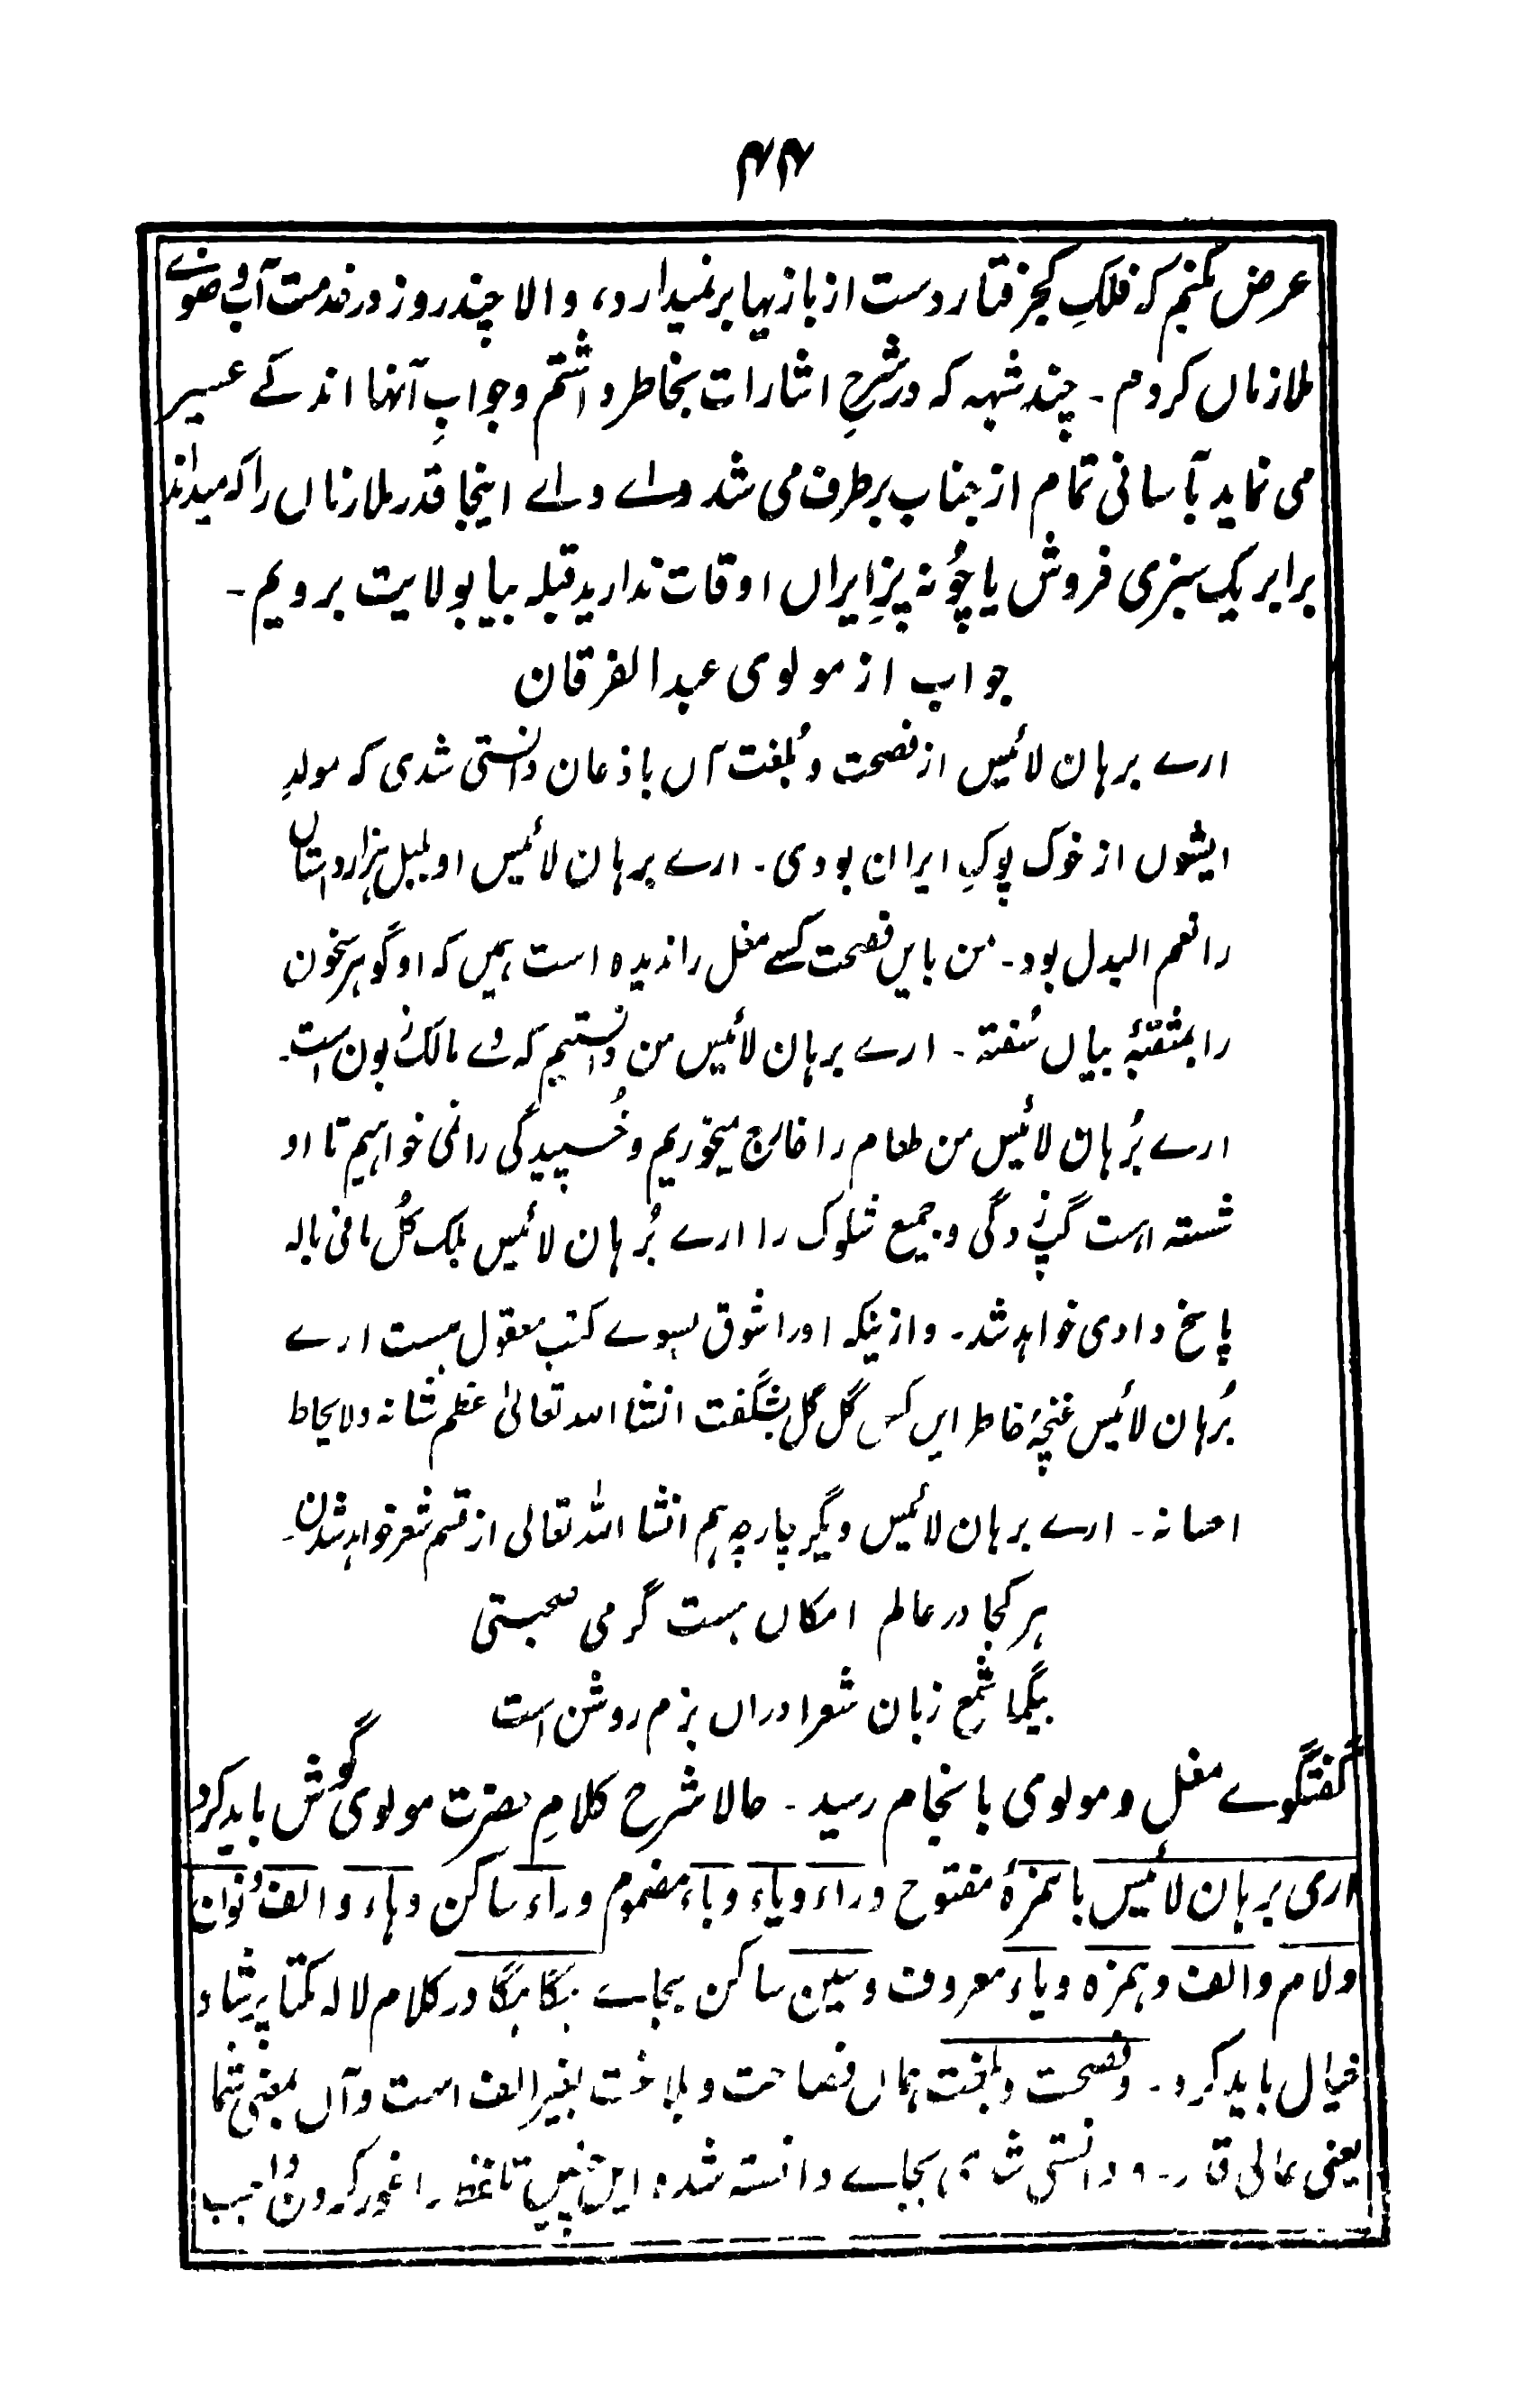 ۴۴
عرض کنم کہ فلکِ کجرفتار دست از بازیہا برنمیدارد، والا چند روز در خدمت آب وضوے
ملازماں کردم۔ چند شبہہ کہ در شرحِ اشارات بخاطر داشتم و جوابِ آنہا اند کے عسیر
می نماید بآسانی تمام از جناب برطرف می شد واے واے اینجا قدر ملازماں را کہ میداند
برابر یک سبزی فروش یا چُونہ پزِ ایراں اوقات ندارید قبلہ بیا بولایت برویم۔
جواب از مولوی عبدالفرقان
ارے برہان لائمیس از فصحت و بُلغت آں باذعان دانستی شدی کہ مولدِ
ایشوں از خوک پوکِ ایران بودی۔ ارے برہان لائمیس او بلبل ہزار داستاں
را نعم البدل بود۔ من بایں فصحت کسے مغل را ندیدہ است ہمیں کہ او گوہر سخون
را بمثقبۂ بیاں سُفتہ۔ ارے برہان لائمیس من دانستیم کہ وے مالک زبون است۔
ارے بُرہان لائمیس من طعام را خارج میخوریم و خُسپیدگی را نمی خواہیم تا او
شستہ است گپ زدگی و جمیع شلوک را ارے بُرہان لائمیس بلک کُل مافی بالہ
پاسخ دادی خواہد شد۔ و ازینکہ او را شوق بسوے کتب معقول ہست ارے
بُرہان لائمیس غنچۂ خاطر ایں کس گل گل بشگفت انشا اللہ تعالیٰ عظم شانہ ولا یحاط
احسانہ۔ ارے برہان لائمیس دیگر پارچہ ہم انشا اللہ تعالی از قسم شعر خواہد شدن۔
ہر کجا در عالم امکاں ہست گرمی صحبتی
بیگما شمع زبان شعرا دراں بزم روشن است
گفتگوے مغل و مولوی بانجام رسید۔ حالا شرح کلامِ حضرت مولوی گوش باید کرد
اری برہان لائمیس با ہمزۂ مفتوح و راء و یاء و باء مضموم و راء ساکن و ہاء و الف و نون
و لام و الف و ہمزہ و یاء معروف و سین ساکن بجاے ہنگا ہنگا در کلام لالہ مکتا پرشاد
خیال باید کرد۔ و فصحت و بلغت ہماں فصاحت و بلاغت بغیر الف است و آں بمعنی شما
یعنی عالی قدر۔ و دانستی شدی بجاے دانستہ شدہ ایں چنیں تلفظ را غور کردن واجب